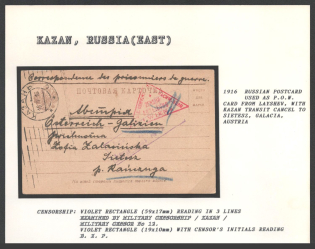 KAZAN, RUSSIA(EAST)
ПОЧТОВАЯ КАРТОЧКА
Correspondance des prisonniers de guerre.
Австрія
Österreich-Galizien
Zofia
p. 
1916 RUSSIAN POSTCARD
USED AS P.O.W.
CARD FROM LAYSHEV, WITH
KAZAN TRANSIT CANCEL TO
SIETESZ, GALACIA,
AUSTRIA
CENSORSHIP: VIOLET RECTANGLE (59x17mm) READING IN 3 LINES
EXAMINED BY MILITARY CENSORSHIP / KAZAN /
MILITARY CENSOR No 13.
VIOLET RECTANGLE (19x10mm) WITH CENSOR'S INITIALS READING